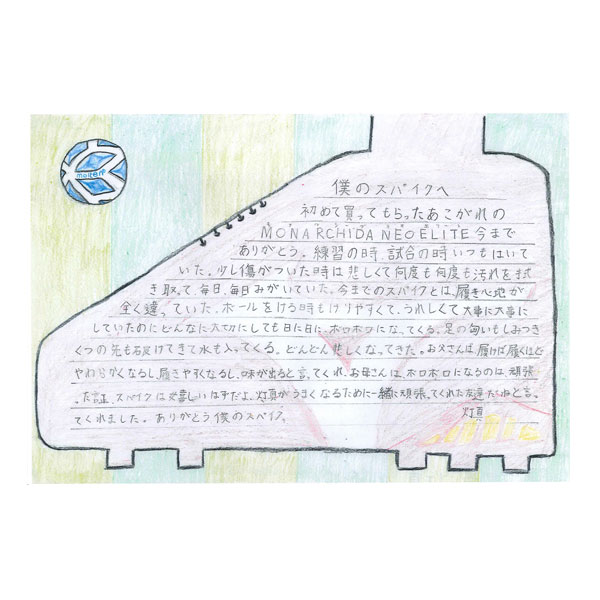 molten
僕のスパイクへ
初めて買ってもらったあこがれの
MONARCHIDA NEO ELITE 今まで
ありがとう。練習の時、試合の時いつもはいて
いた。少し傷がついた時は悲しくて何度も何度も汚れを拭
き取って、毎日、毎日みがいていた。今までのスパイクとは、履き心地が
全く違っていた。ボールをける時もけりやすくて、うれしくて大事に大事に
していたのにどんなに大切にしても日に日に、ボロボロになってくる。足の匂いもしみつき
くつの先も裂けてきて水も入ってくる。どんどん悲しくなってきた。お父さんは、履けば履くほど
やわらかくなるし、履きやすくなるし、味が出ると言ってくれ、お母さんは、ボロボロになるのは、頑張
った証、スパイクは嬉しいはずだよ、灯真がうまくなるために一緒に頑張ってくれた友達だねと言っ
てくれました。ありがとう僕のスパイク。
灯真